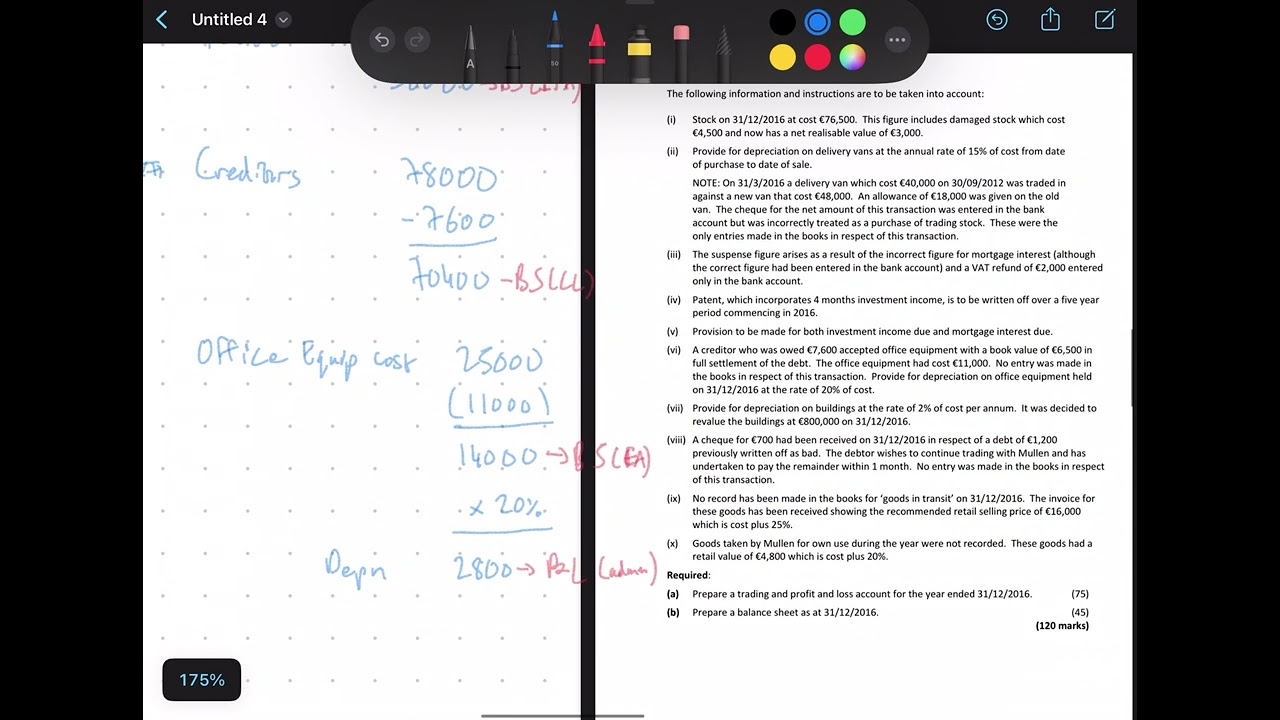 Untitled 4
A
50
Creditors 78000
- 7600
70400 - BS(CL)
Office Equip cost 25000
(11000)
14000 → BS(FA)
x 20%
Depn 2800 → P+L (admin)
175%
The following information and instructions are to be taken into account:
(i) Stock on 31/12/2016 at cost €76,500. This figure includes damaged stock which cost
€4,500 and now has a net realisable value of €3,000.
(ii) Provide for depreciation on delivery vans at the annual rate of 15% of cost from date
of purchase to date of sale.
NOTE: On 31/3/2016 a delivery van which cost €40,000 on 30/09/2012 was traded in
against a new van that cost €48,000. An allowance of €18,000 was given on the old
van. The cheque for the net amount of this transaction was entered in the bank
account but was incorrectly treated as a purchase of trading stock. These were the
only entries made in the books in respect of this transaction.
(iii) The suspense figure arises as a result of the incorrect figure for mortgage interest (although
the correct figure had been entered in the bank account) and a VAT refund of €2,000 entered
only in the bank account.
(iv) Patent, which incorporates 4 months investment income, is to be written off over a five year
period commencing in 2016.
(v) Provision to be made for both investment income due and mortgage interest due.
(vi) A creditor who was owed €7,600 accepted office equipment with a book value of €6,500 in
full settlement of the debt. The office equipment had cost €11,000. No entry was made in
the books in respect of this transaction. Provide for depreciation on office equipment held
on 31/12/2016 at the rate of 20% of cost.
(vii) Provide for depreciation on buildings at the rate of 2% of cost per annum. It was decided to
revalue the buildings at €800,000 on 31/12/2016.
(viii) A cheque for €700 had been received on 31/12/2016 in respect of a debt of €1,200
previously written off as bad. The debtor wishes to continue trading with Mullen and has
undertaken to pay the remainder within 1 month. No entry was made in the books in respect
of this transaction.
(ix) No record has been made in the books for 'goods in transit' on 31/12/2016. The invoice for
these goods has been received showing the recommended retail selling price of €16,000
which is cost plus 25%.
(x) Goods taken by Mullen for own use during the year were not recorded. These goods had a
retail value of €4,800 which is cost plus 20%.
Required:
(a) Prepare a trading and profit and loss account for the year ended 31/12/2016. (75)
(b) Prepare a balance sheet as at 31/12/2016. (45)
(120 marks)